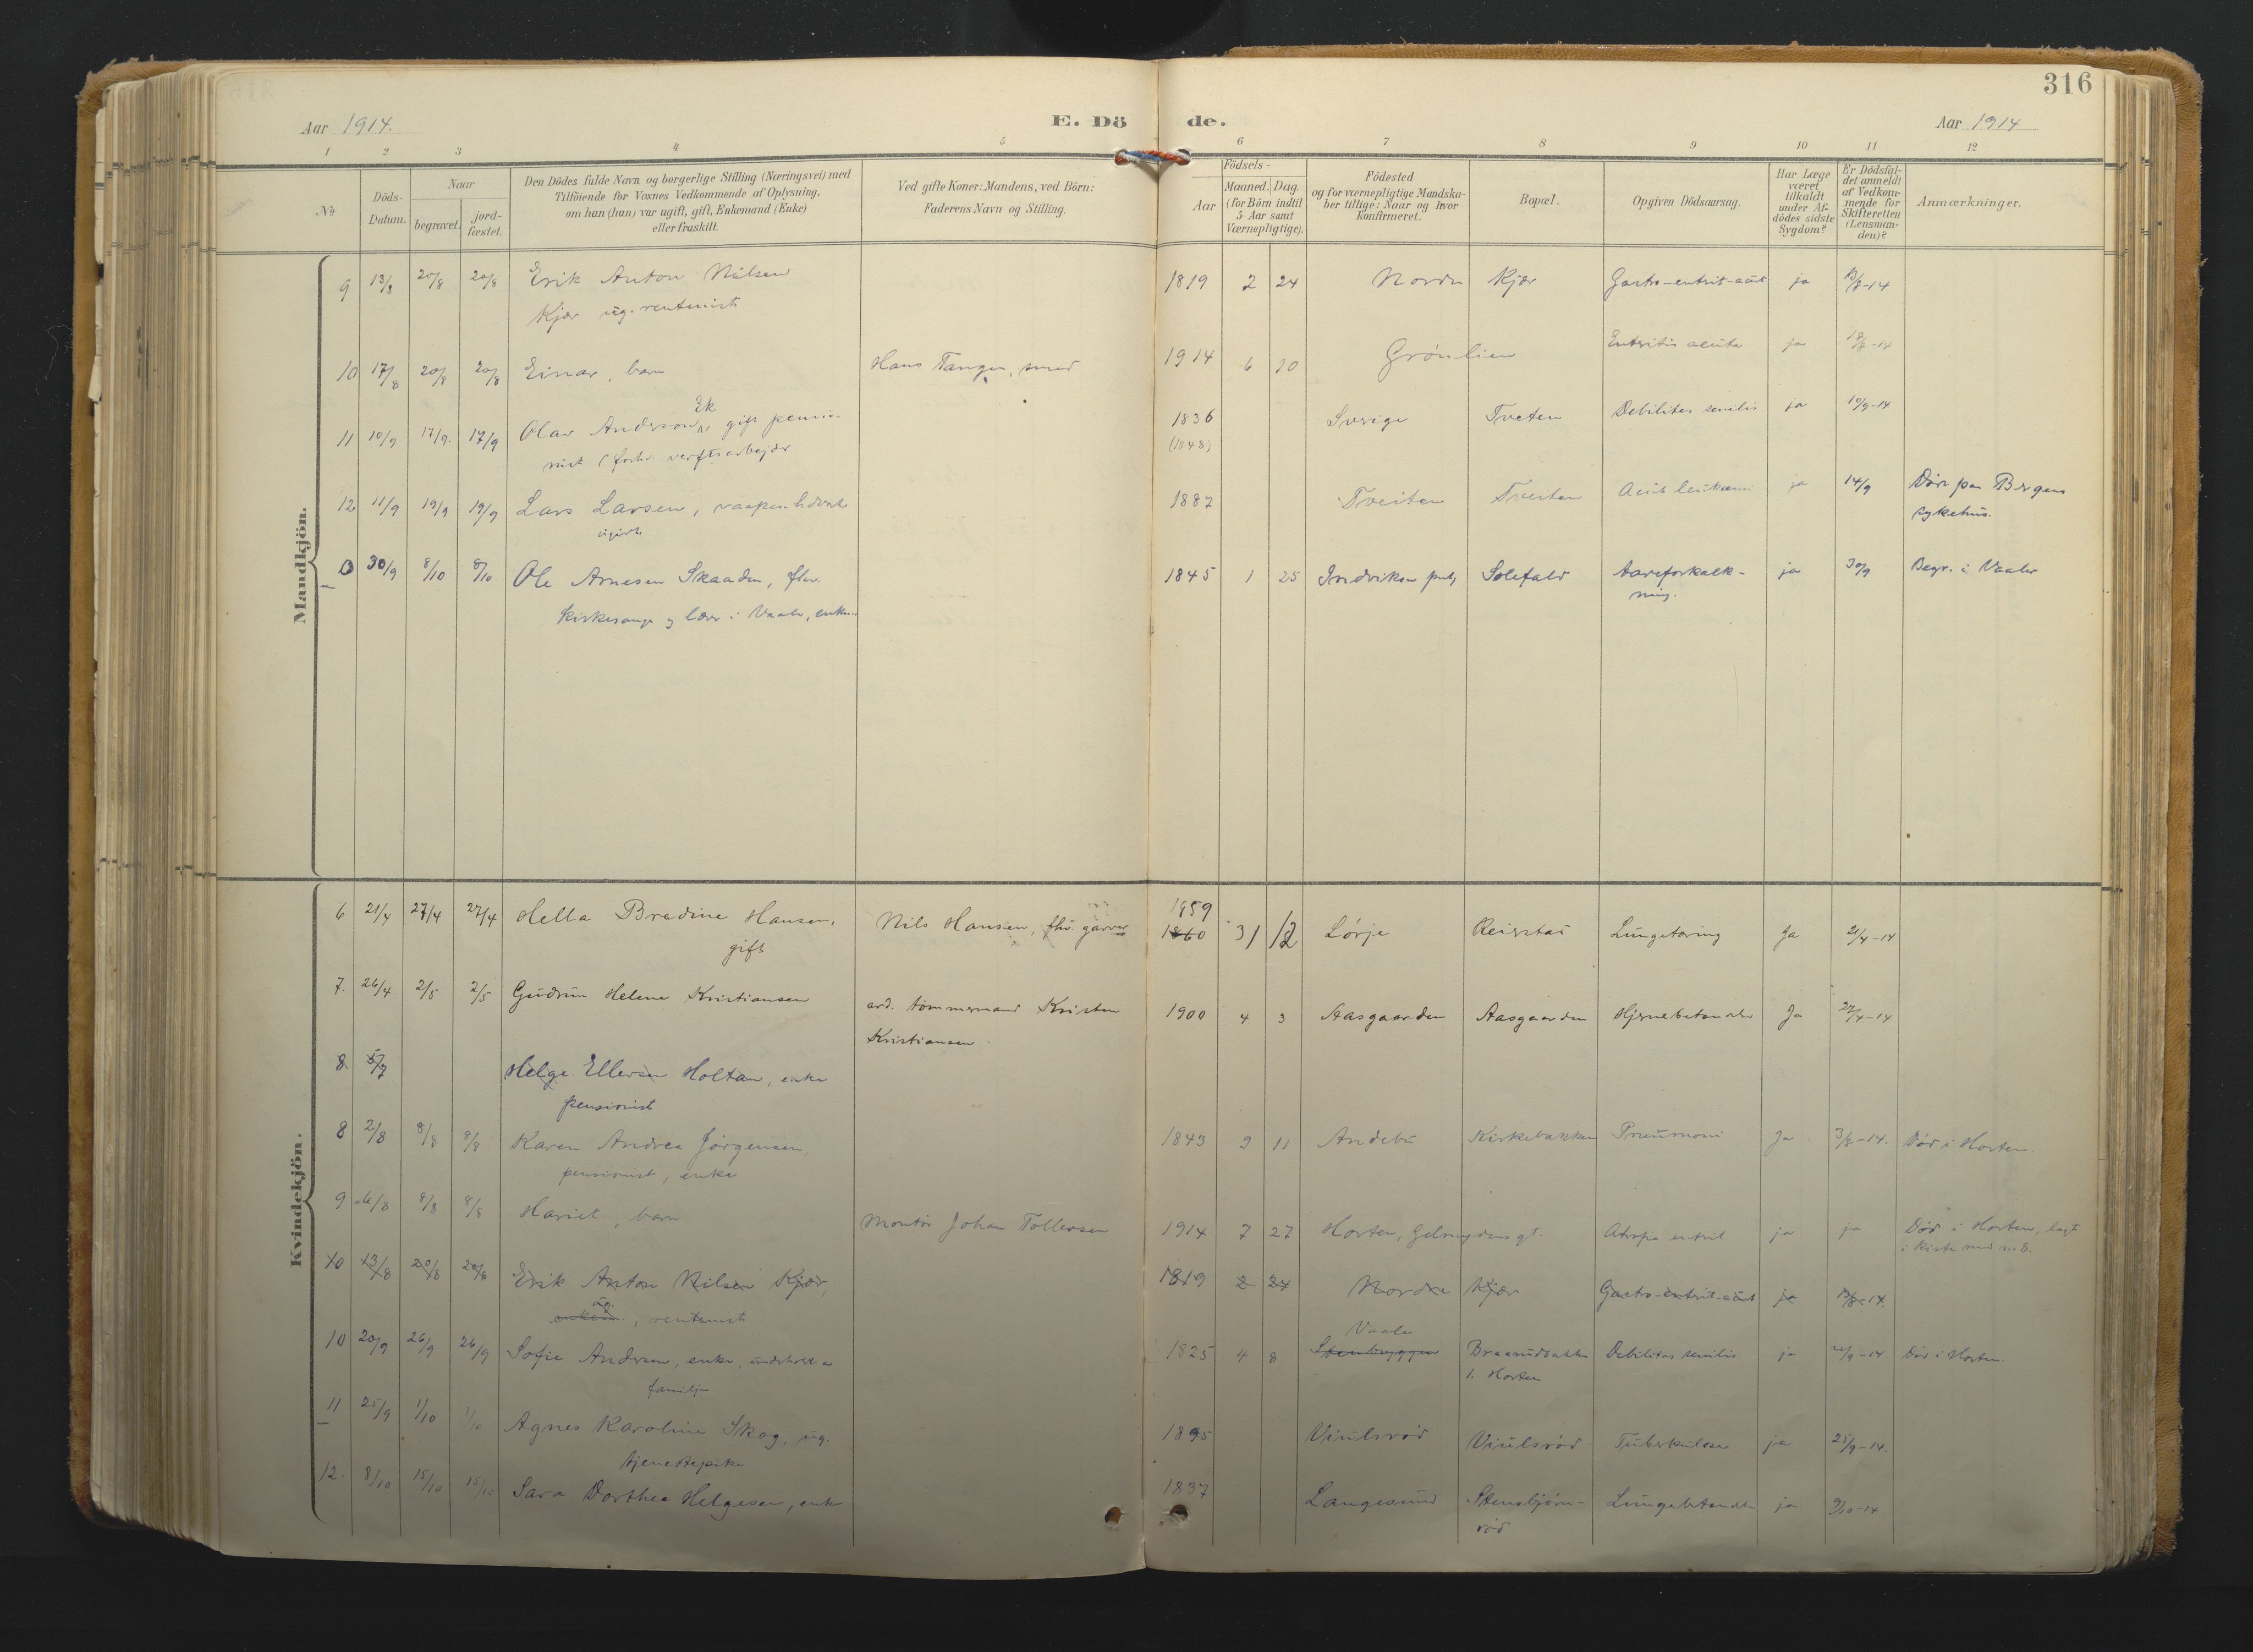 316
Aar 1914.
E. Dö de.
Aar 1914
1 2 3 4 5 6 7 8 9 10 11 12
No
Döds-Datum.
Naar
begravet.
jord-fæstet.
Den Dödes fulde Navn og borgerlige Stilling (Næringsvei) med
Tilföiende for Voxnes Vedkommende af Oplysning,
om han (hun) var ugift, gift, Enkemand (Enke)
eller fraskilt.
Ved gifte Koner: Mandens, ved Börn:
Faderens Navn og Stilling.
Födsels-
Aar
Maaned. Dag.
(for Börn indtil
5 Aar samt
Værnepligtige).
Födested
og for værnepligtige Mandska-
ber tillige: Naar og hvor
konfirmeret.
Bopæl.
Opgiven Dödsaarsag.
Har Læge
været
tilkaldt
under Af-
dödes sidste
Sygdom?
Er Dödsfal-
det anmeldt
af Vedkom-
mende for
Skifteretten
(Lensman-
den)?
Anmærkninger.
Mandkjön.
9 13/8 20/8 20/8 Erik Anton Nilsen 1819 2 24 Nordre Kjær Gastro-entrit-acut ja 13/8-14
Kjær ug. rentenist
10 17/8 20/8 20/8 Einar, barn Hans Tangen, smed 1914 6 10 Grönlien Entritis acuta ja 18/8-14
Ek
11 10/9 17/9. 17/9 Olav Anderson gift pensio- 1836 Sverige Tveten Debilitas senilis ja 10/9-14
nist (forh. verftsarbejder (1848)
12 11/9 19/9 19/9 Lars Larsen, vaapen 1887 Tveiten Tveiten Acut leukæmi ja 14/9 Död paa Bergens
ugivt sykehus.
13 30/9 8/10 8/10 Ole Arnesen Skaaden, fhv. 1845 1 25 Indviken Solefald Aareforkalk- ja 30/9 Begr. i Vaaler
kirkesanger og lærer i Vaale, enkem. ning.
Kvindekjön.
6 21/4 27/4 27/4 Hella Bradine Hansen, Nils Hansen, fhv. garver 1859 1860 31 12 Lörje Reirstad Lungetæring Ja 21/4-14
gift
7. 26/4 2/5 2/5 Gudrun Helene Kristiansen arb. tömmermand Kristen 1900 4 3 Aasgaarden Aasgaarden Hjernebetændelse Ja 27/4-14
Kristiansen
8 5/7 Helge Ellersen Holtan, enke
pensionist
8 2/8 8/8 8/8 Karen Andrea Jörgensen, 1843 9 11 Andebu Kirkebakken Pneumoni Ja 3/8-14. Död i Horten
pensionist, enke
9 4/8 8/8 8/8 Hariet, barn Montör Johan Tollersen 1914 7 27 Horten, gt. Atrofia entrit ja ja Död i Horten, lagt
i kiste med n. 8.
10 13/8 20/8 20/8 Erik Anton Nilsen Kjær, 1819 2 24 Nordre Kjær Gastro-entrit-acut ja 13/8-14.
ug.
enkem., rentenist
10 20/9 26/9 26/9 Sofie Andersen, enke, underholdt av 1825 4 8 Vaale Stenbryggen Braarudbakken Debilitas senilis ja 21/9-14. Död i Horten.
familje 1. Horten
11 25/9 1/10 1/10 Agnes Karoline Skog, ug. 1895 Viulsröd Viulsröd Tuberkulose ja 25/9-14.
tjenestepike
12. 8/10 15/10 15/10 Sara Dorthea Helgesen, enke 1837 Langesund Stensbjörn- Lungebetændelse ja 9/10-14
röd